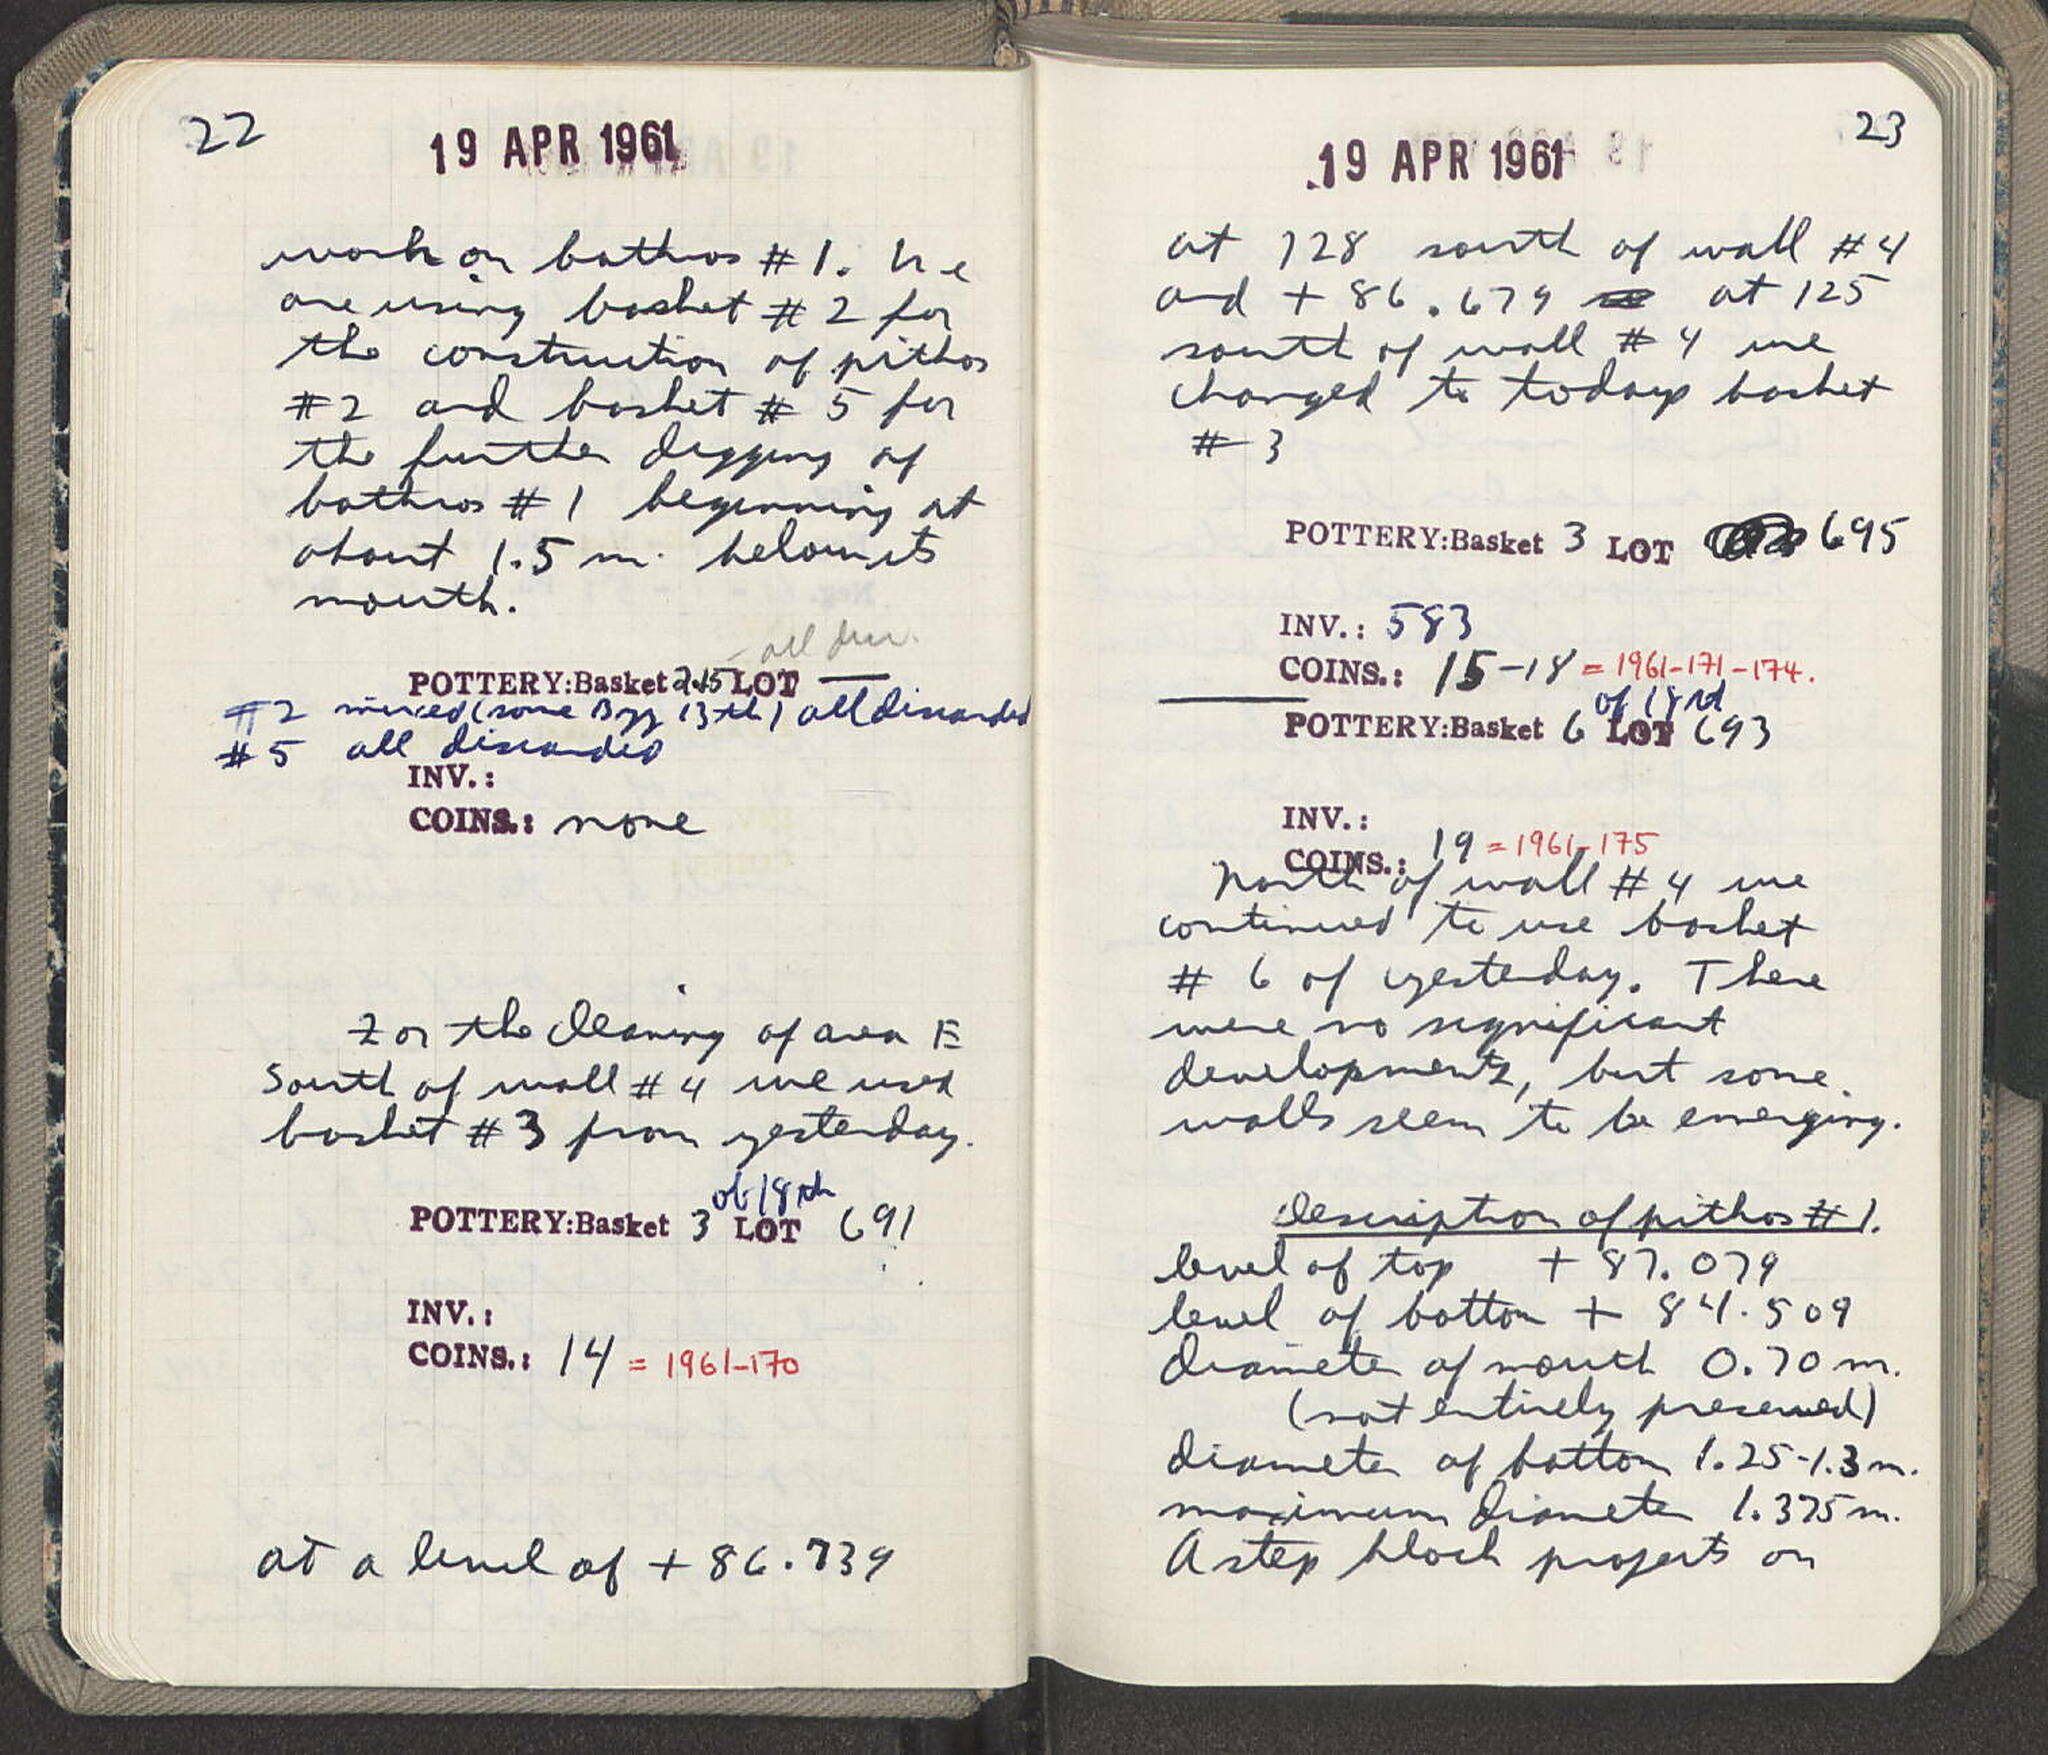 22
19 APR 1961
work on bothros #1. We
are using basket #2 for
the construction of pithos
#2 and basket #5 for
the further digging of
bothros #1 beginning at
about 1.5 m. below its
mouth.
all disc.
POTTERY: Basket 2.15 LOT —
#2 mixed (some Byz 13th) all discarded
#5 all discarded
INV.:
COINS.: none
For the cleaning of area E
South of wall #4 we used
basket #3 from yesterday.
of 18th
POTTERY: Basket 3 LOT 691
INV.:
COINS.: 14 = 1961-170
at a level of + 86.739
23
19 APR 1961
at 128 south of wall #4
and + 86.679 at 125
south of wall #4 we
changed to todays basket
#3
POTTERY: Basket 3 LOT 695
INV.: 583
COINS.: 15-18 = 1961-171-174.
of 18th
POTTERY: Basket 6 LOT 693
INV.:
COINS.: 19 = 1961-175
North of wall #4 we
continued to use basket
# 6 of yesterday. There
were no significant
developments, but some
walls seem to be emerging.
Description of pithos #1.
level of top + 87.079
level of bottom + 84.509
diameter of mouth 0.70 m.
(not entirely preserved)
diameter of bottom 1.25-1.3 m.
maximum diameter 1.375 m.
A step block projects on